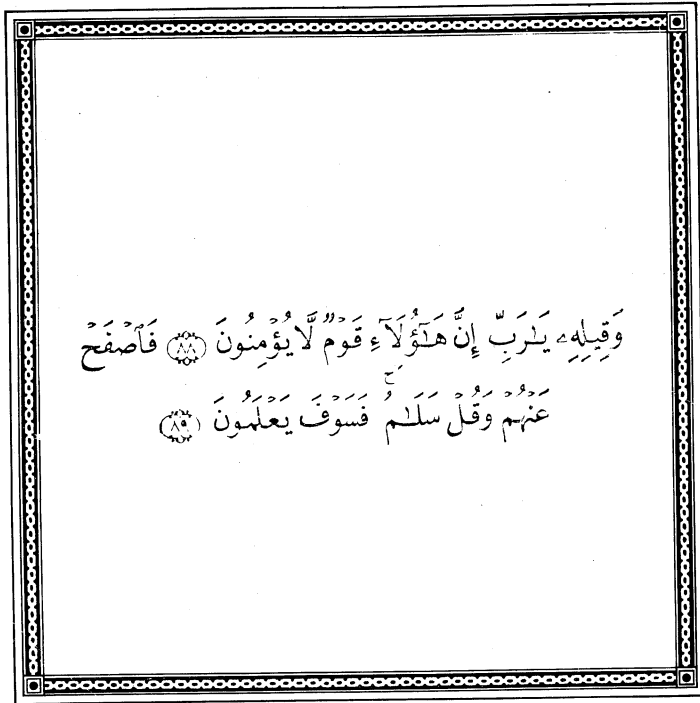 وَقِيلِهِۦ يَـٰرَبِّ إِنَّ هَـٰٓؤُلَآءِ قَوۡمٌ لَّا يُؤۡمِنُونَ ﴿٨٨﴾ فَٱصۡفَحۡ
عَنۡهُمۡ وَقُلۡ سَلَـٰمٌۚ فَسَوۡفَ يَعۡلَمُونَ ﴿٨٩﴾